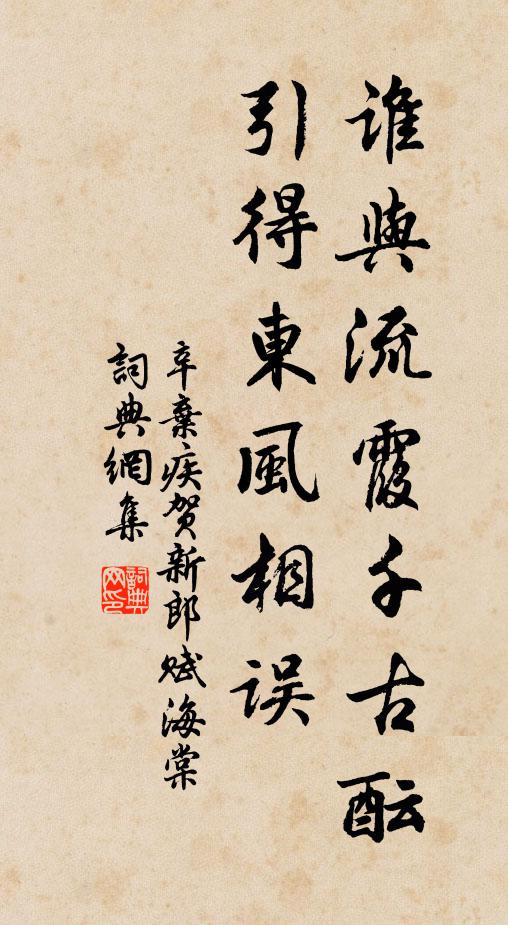 誰與流霞千古酝
引得東風相误
辛棄疾贺新郎赋海棠
詞典網集
詞典網印